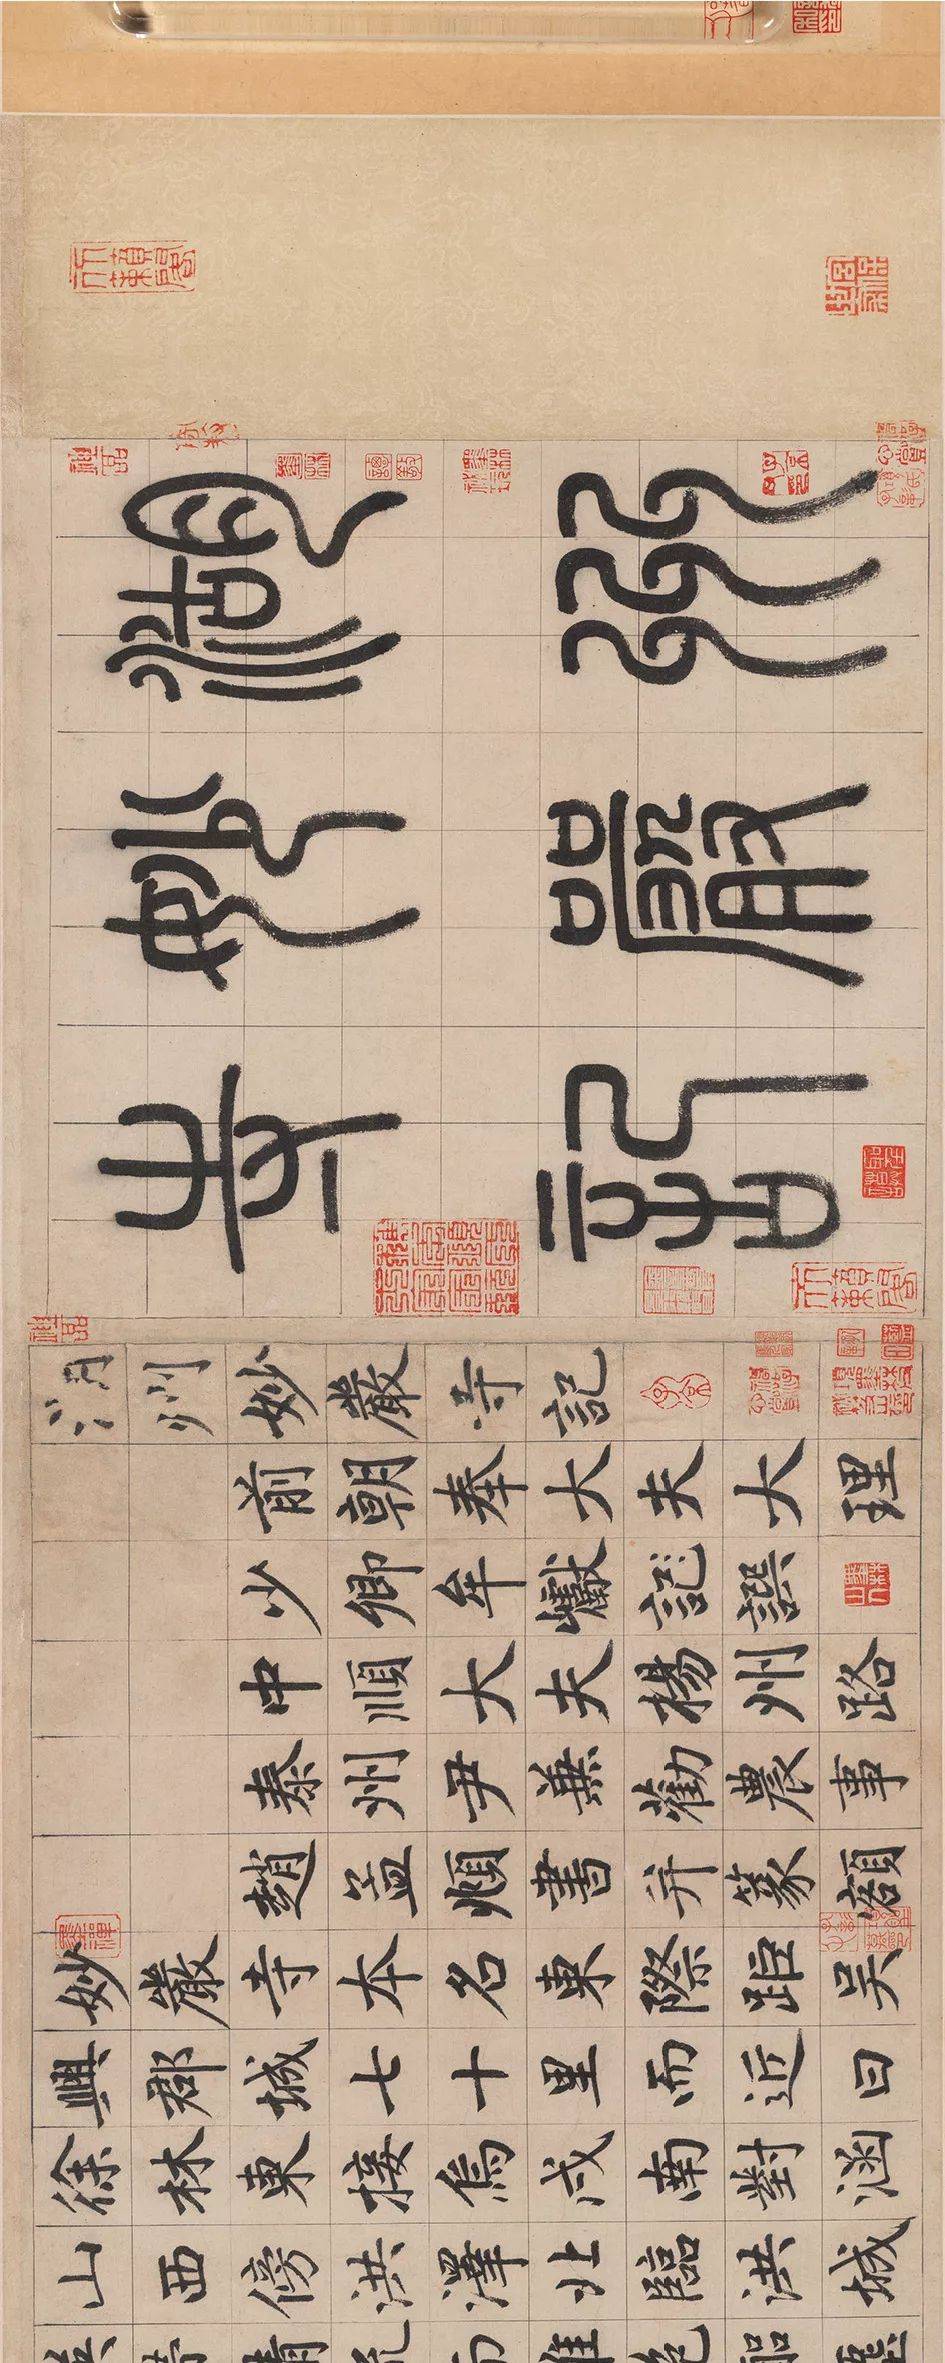 湖州
妙嚴
寺記
湖州妙嚴寺記
前朝奉大夫大理
少卿牟巘記譔
中順大夫揚州路
泰州尹兼勸農事
趙孟頫書并篆額
妙嚴寺本名東際距吳
興郡城七十里而近曰
徐林東接烏戍南對涵
山西傍洪澤北臨洪城